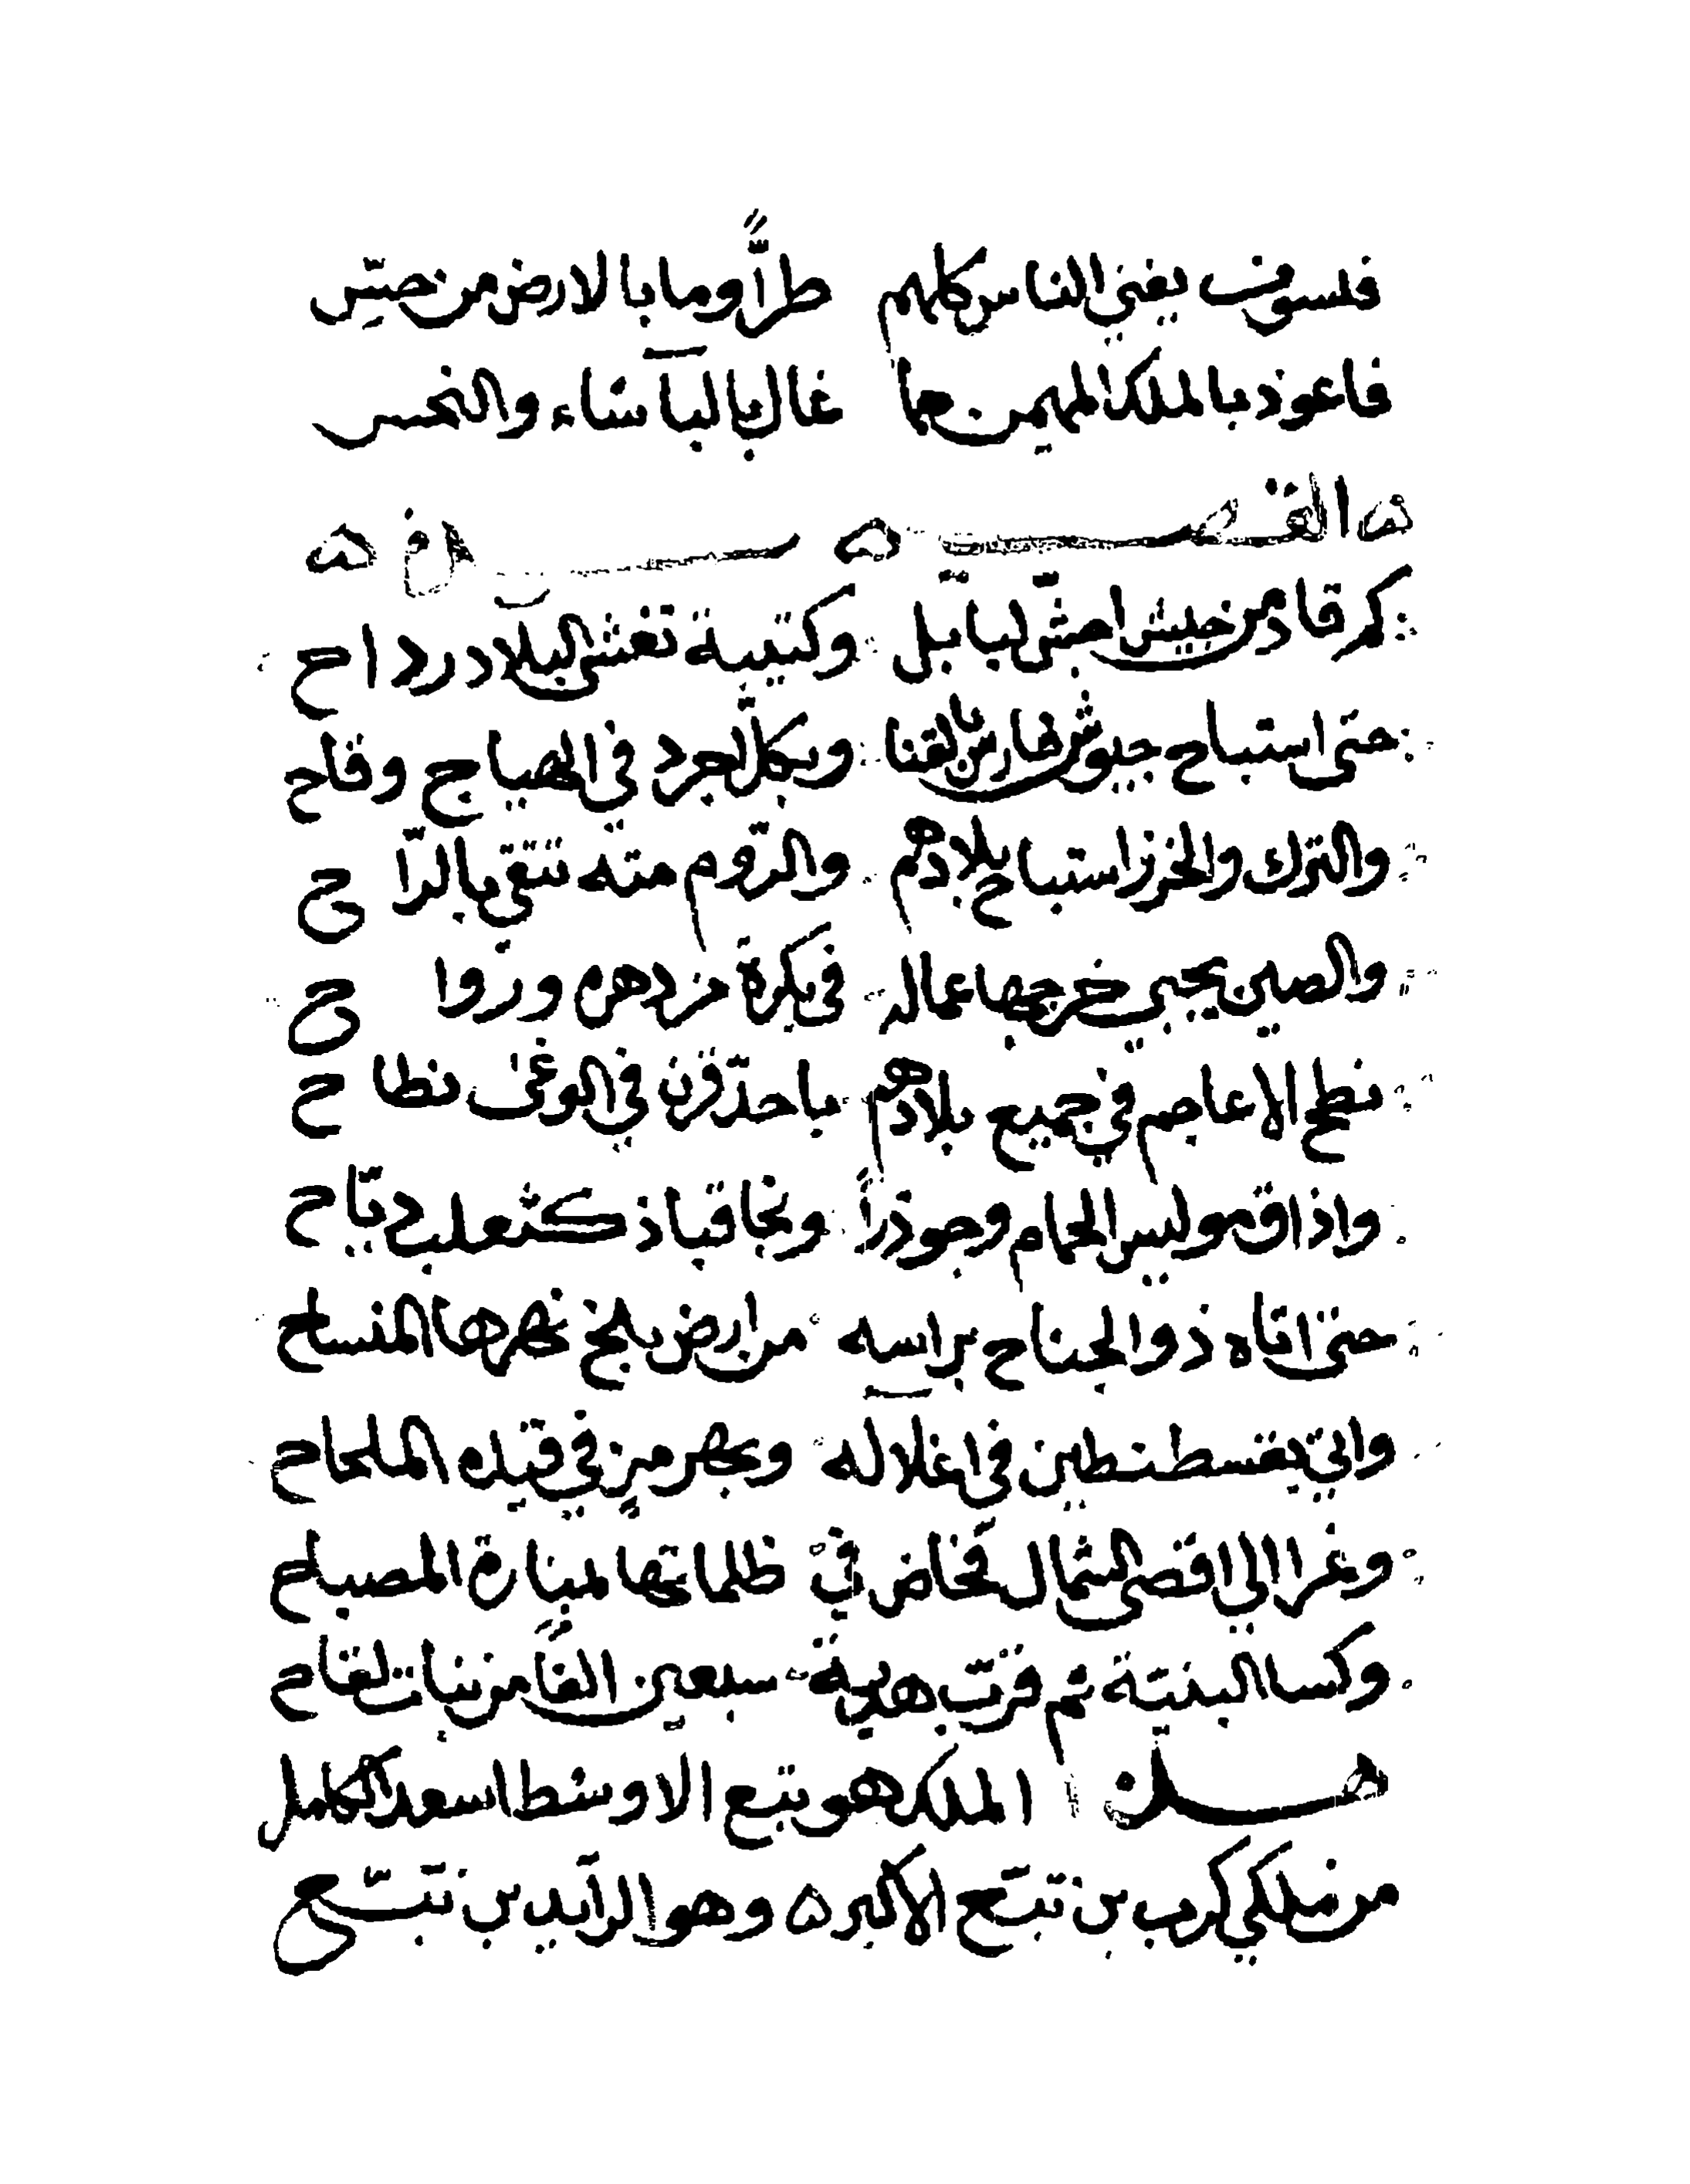 فلسوف يفني الناس كلهم طرًّا وما بالارض من حسّ
فاعوذ بالملك المهيمن مما غال بالباساء والنحس
القصيدة
كم قاد من جيش اجشّ لبابل وكتيبة تغشى البلاد رداح
حتى استباح جيوش فارس بالقنا وبكل اجرد في الهياج وقاح
والترك والخزر استباح بلادهم والرّوم منه تتقي بالرّاح
والصين يجبي خرجها عماله في بكرة من دهره ورواح
نطح الاعاجم في جميع بلادهم باحدّ قرن في الوغى نطاح
واذاق موليس الحمام وجوذرًا ونجا قباذ كثعلب ديّاح
حتى اتاه ذو الجناح براسه من ارض بلخ نهرها المنساح
واتي بقسطنطين في اغلاله وبهرمز في قيده الملحاح
وغزا الي اقصى الشمال فخاض في ظلماتها لمنارة المصباح
وكسا البنيّة ثم قرّب هديه سبعين الفًا من بنات لقاح
هذا الملك هو تبع الاوسط اسعد الكامل
من ملكي كرب بن تبّع الاكبر وهو الرّايد بن تبّع